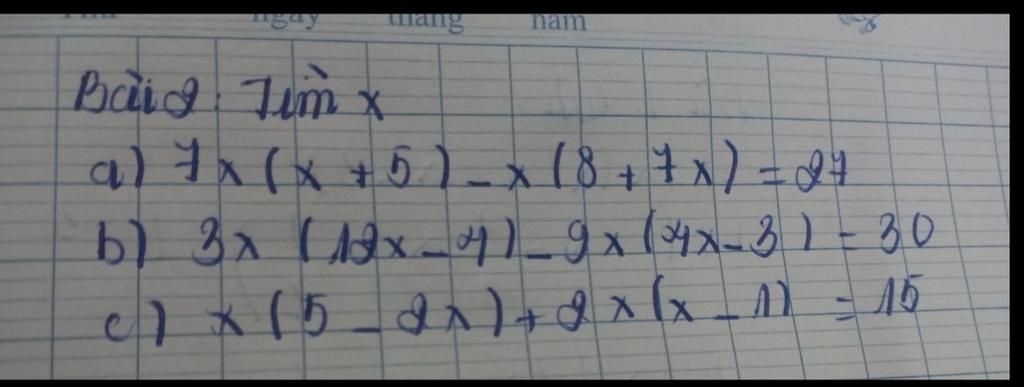 ngày tháng năm
Bài 2: Tìm x
a) 7x(x+5)-x(8+7x)=27
b) 3x(12x-4)-9x(4x-3)=30
c) x(5-2x)+2x(x-1)=15